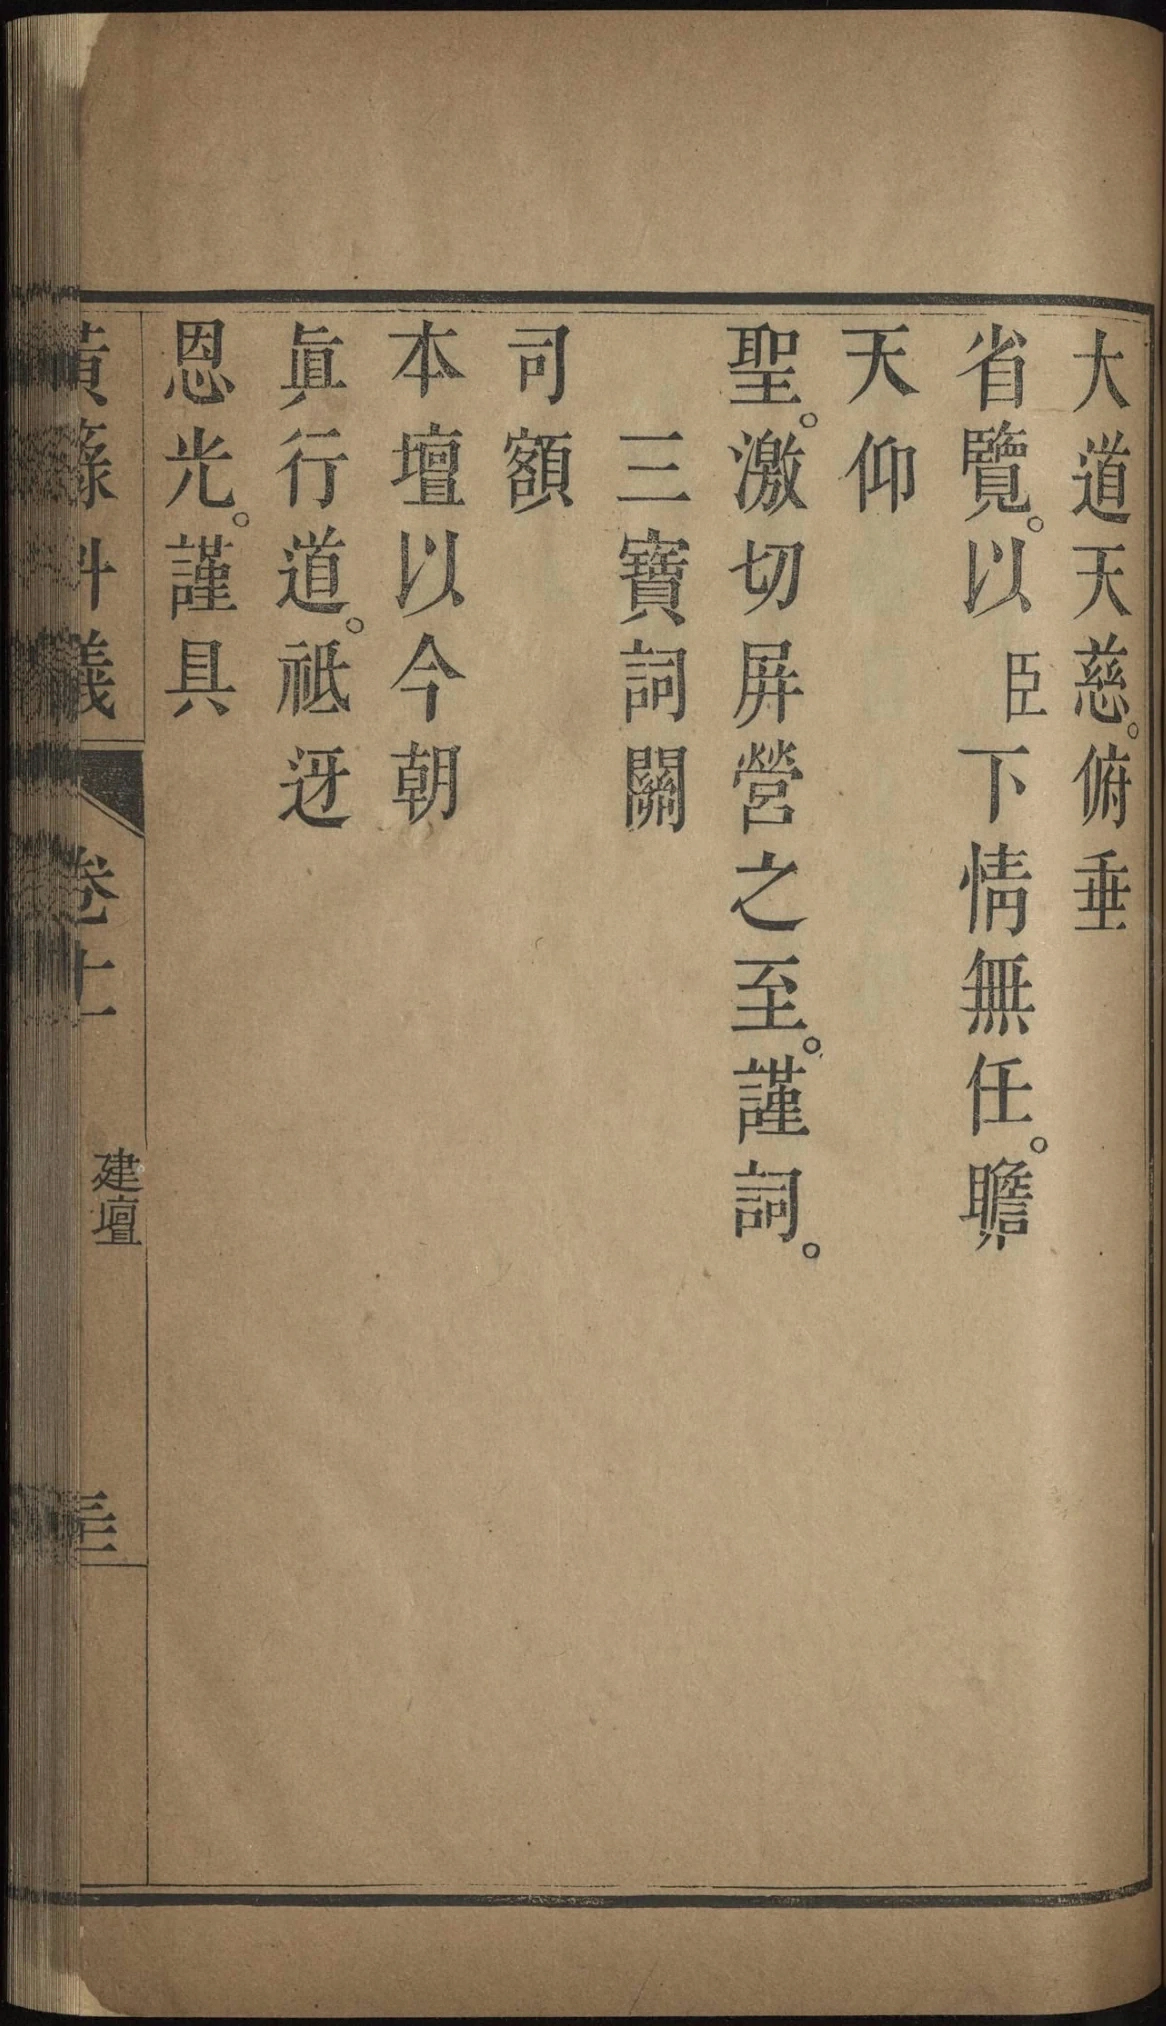 大道天慈。俯垂
省覽。以臣下情無任。瞻
天仰
聖。激切屏營之至。謹詞。
三寶詞關
司額
本壇以今朝
眞行道。祗迓
恩光。謹具
黃籙科儀
卷十一
建壇